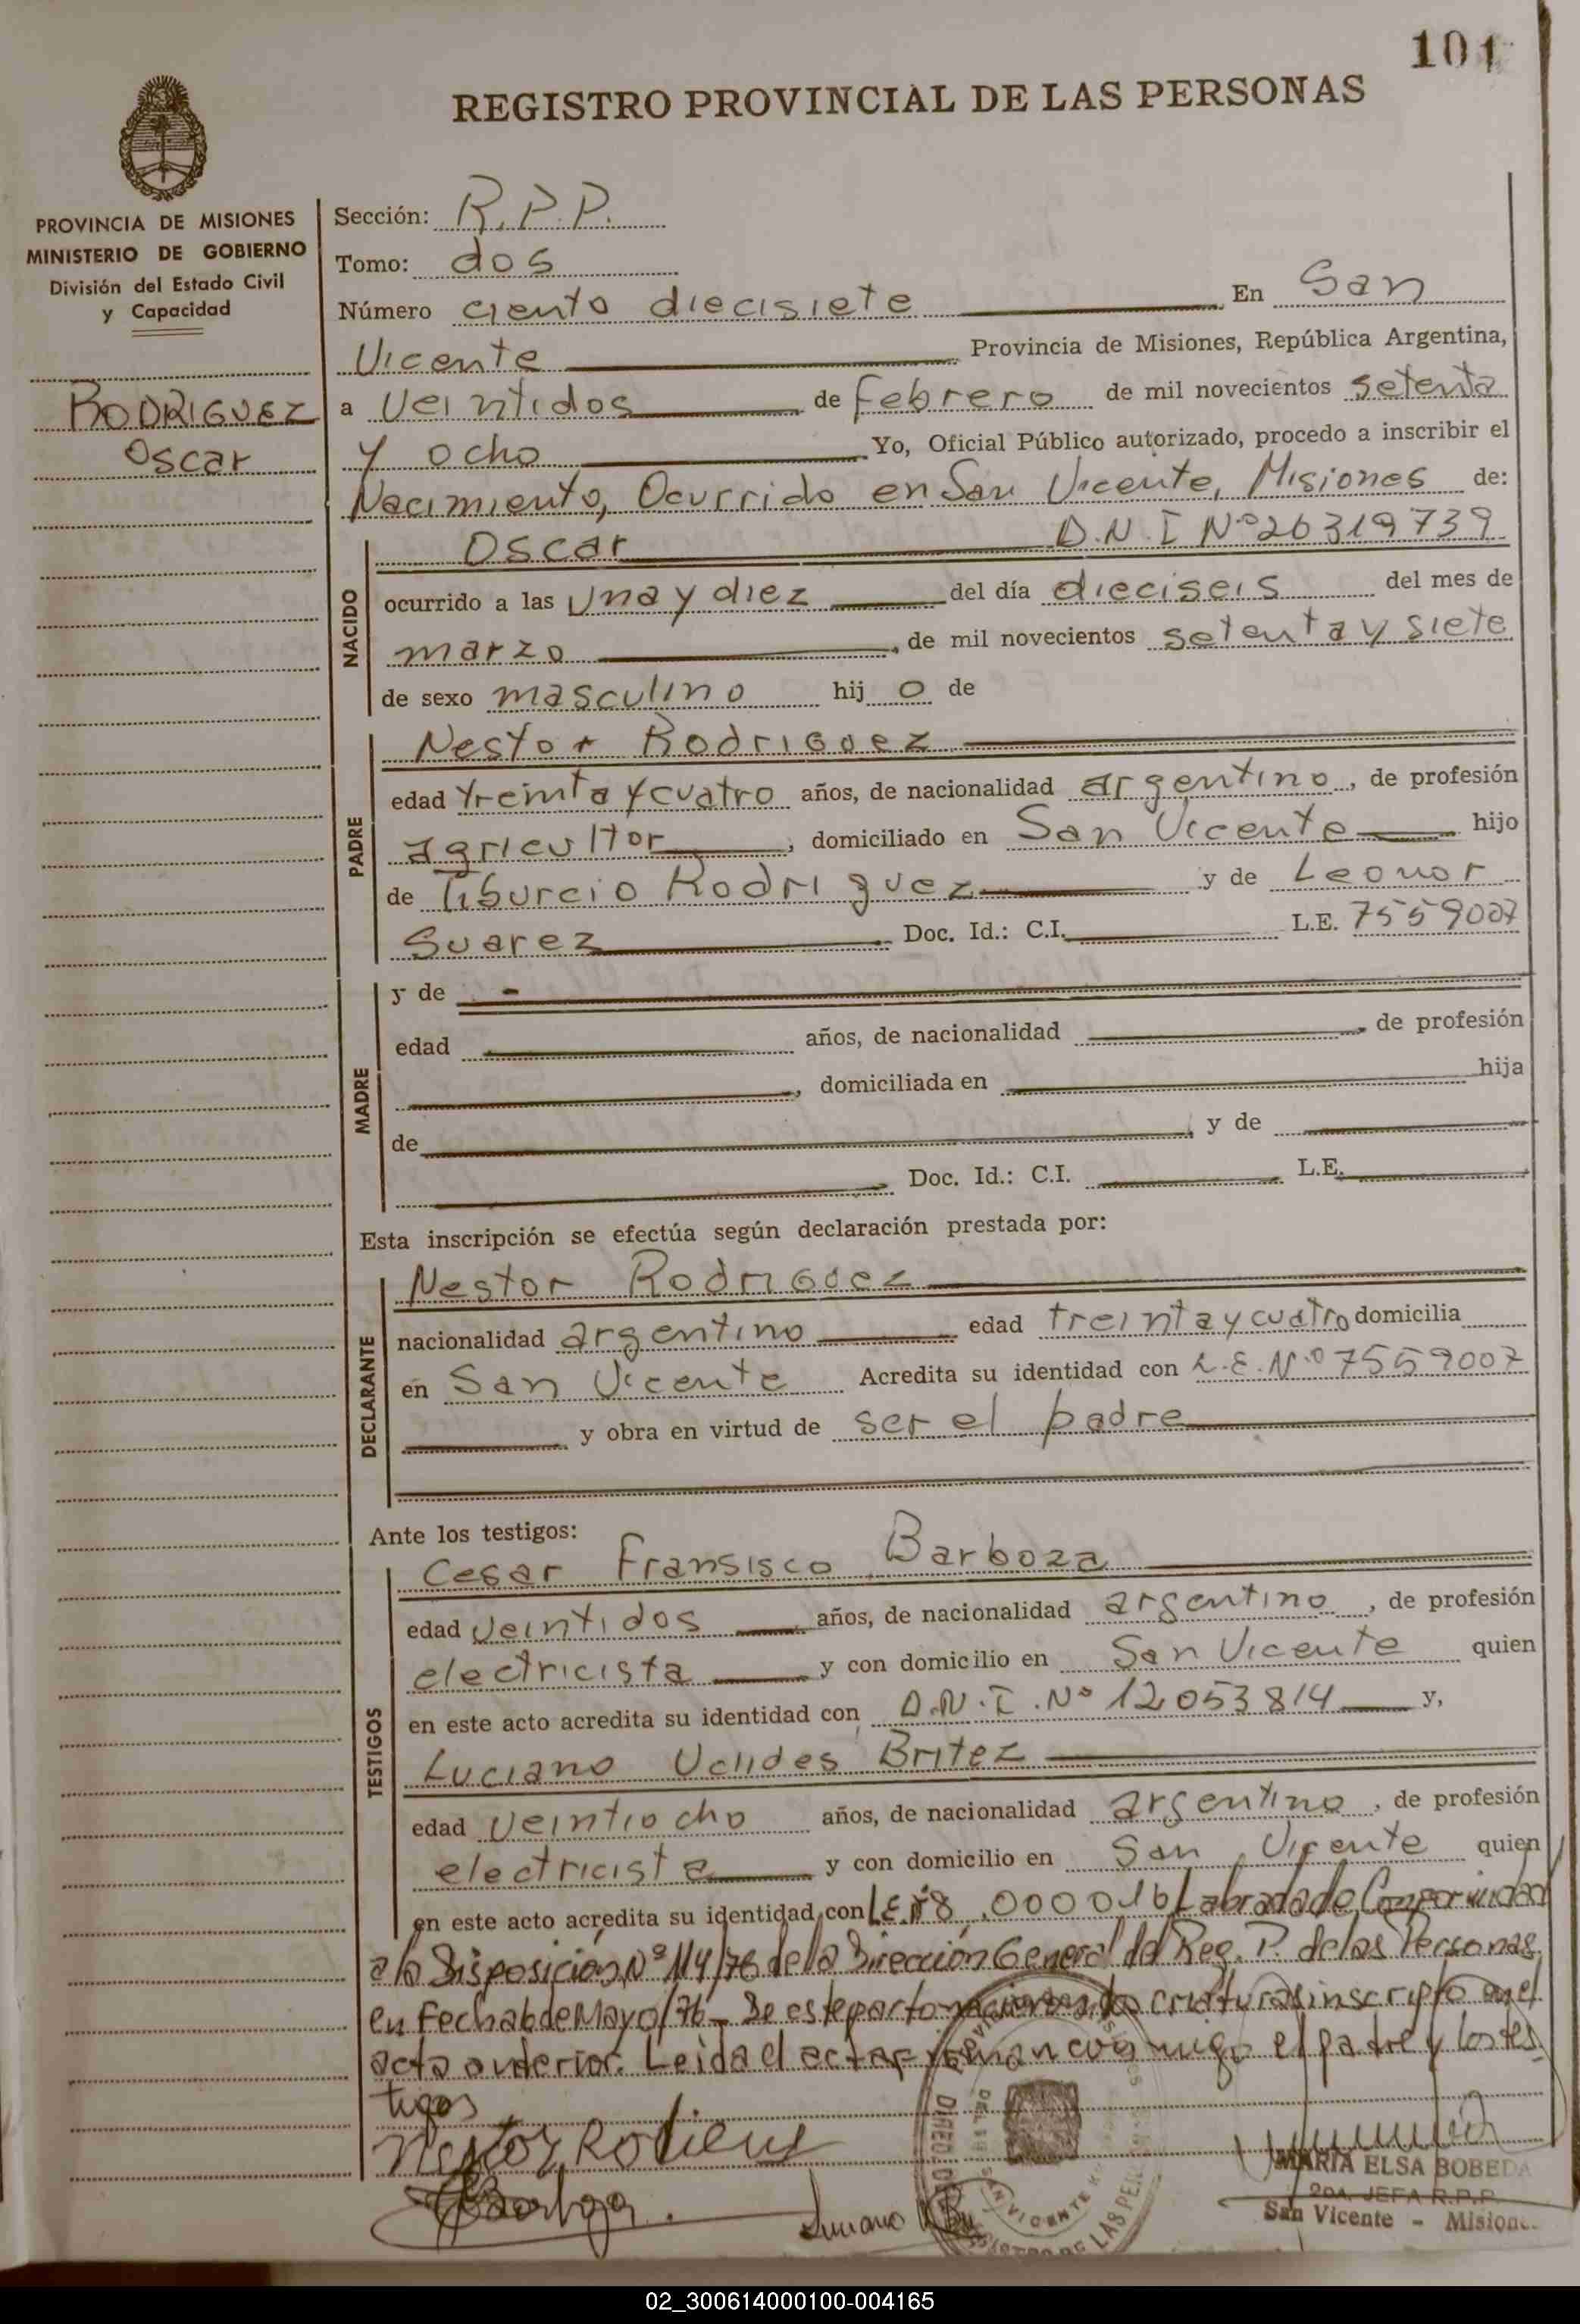 101
REGISTRO PROVINCIAL DE LAS PERSONAS
PROVINCIA DE MISIONES
MINISTERIO DE GOBIERNO
División del Estado Civil
y Capacidad
RODRIGUEZ
Oscar
Sección: R.P.P.
Tomo: dos
Número ciento diecisiete En San
Vicente Provincia de Misiones, República Argentina,
a veintidos de Febrero de mil novecientos setenta
y ocho Yo, Oficial Público autorizado, procedo a inscribir el
Nacimiento, Ocurrido en San Vicente, Misiones de:
NACIDO
Oscar D.N.I Nº 26319739
ocurrido a las una y diez del día dieciseis del mes de
marzo, de mil novecientos setenta y siete
de sexo masculino hij o de
PADRE
Nestor Rodriguez
edad treinta y cuatro años, de nacionalidad argentino, de profesión
agricultor, domiciliado en San Vicente hijo
de Tiburcio Rodriguez y de Leonor
Suarez Doc. Id.: C.I. L.E. 7559007
MADRE
y de -
edad años, de nacionalidad , de profesión
, domiciliada en hija
de , y de
Doc. Id.: C.I. L.E.
Esta inscripción se efectúa según declaración prestada por:
DECLARANTE
Nestor Rodriguez
nacionalidad argentino edad treinta y cuatro domicilia
en San Vicente Acredita su identidad con L.E. Nº 7559007
y obra en virtud de ser el padre
Ante los testigos:
TESTIGOS
Cesar Fransisco Barboza
edad veintidos años, de nacionalidad argentino, de profesión
electricista y con domicilio en San Vicente quien
en este acto acredita su identidad con D.N.I. Nº 12053814 y,
Luciano Uclides Britez
edad veintiocho años, de nacionalidad argentino, de profesión
electricista y con domicilio en San Vicente quien
en este acto acredita su identidad con L.E. 8.000016 Labrada de Conformidad
a la Disposición Nº 114/76 de la Dirección General del Reg. P. de las Personas
en Fecha 6 de Mayo/76 - De este parto nacieron dos criaturas inscripto en el
acta anterior. Leida el acta firman conmigo el padre y los tes
tigos
Nestor
Luciano
SAN VICENTE
MARIA ELSA BOBEDA
2DA. JEFA R.P.P.
San Vicente - Misiones
02_300614000100-004165